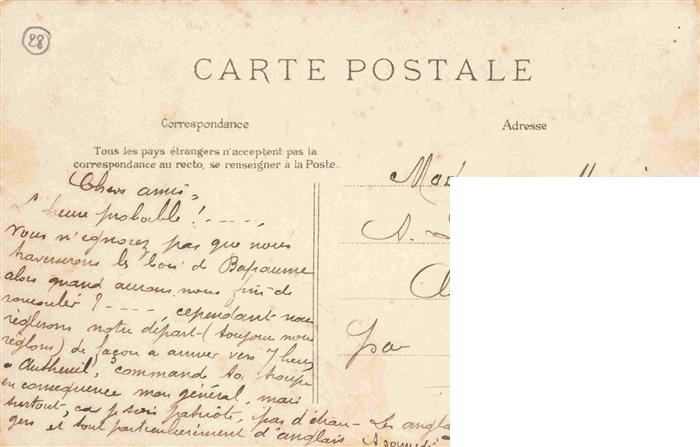 28
CARTE POSTALE
Correspondance
Adresse
Tous les pays étrangers n'acceptent pas la
correspondance au recto, se renseigner à la Poste.
Chers amis,
L'heure probable ! - - - -,
vous n'ignorez pas que nous
traverserons les bois de Bapaume
alors quand aurons nous fini de
roucouler ? - - - -, cependant nous
règlerons notre départ (toujours nous
règlons) de façon à arriver vers 7 heures
Autheuil, commande ta troupe
en conséquence mon général, mais
surtout, car je suis patriote, pas d'étran-
gers et tout particulièrement d'anglais
Les
A
par